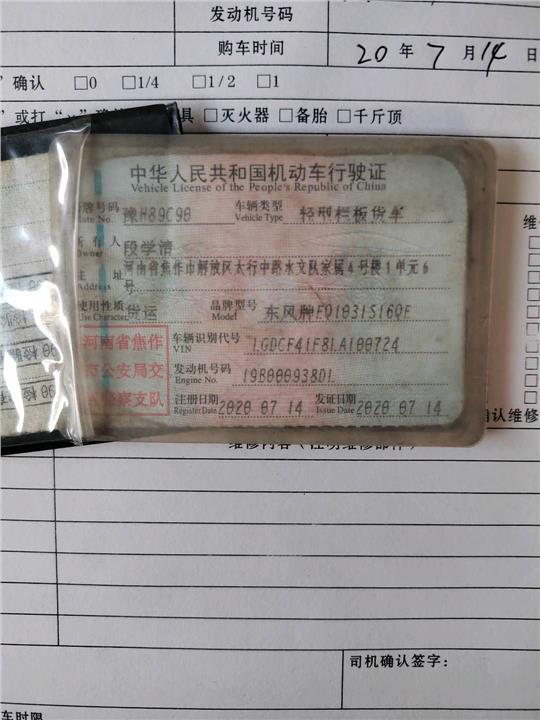 发动机号码
购车时间 20 年 7 月 14 日
确认 □0 □1/4 □1/2 □1
或打 具 □灭火器 □备胎 □千斤顶
中华人民共和国机动车行驶证
Vehicle License of the People's Republic of China
号牌号码 豫H89C90 车辆类型 轻型栏板货车
Plate No. Vehicle Type
所有人 段学清
Owner
住址 河南省焦作市解放区太行中路水文队家属4号楼1单元6号
Address
使用性质 货运 品牌型号 东风牌EQ1031S16QE
Use Character Model
河南省焦作
市公安局交
警察支队
车辆识别代号 LGDCF41F8LA100724
VIN
发动机号码 19B00093801
Engine No.
注册日期 2020 07 14 发证日期 2020 07 14
Register Date Issue Date
维
确认维修
维修内容
司机确认签字：
车时限